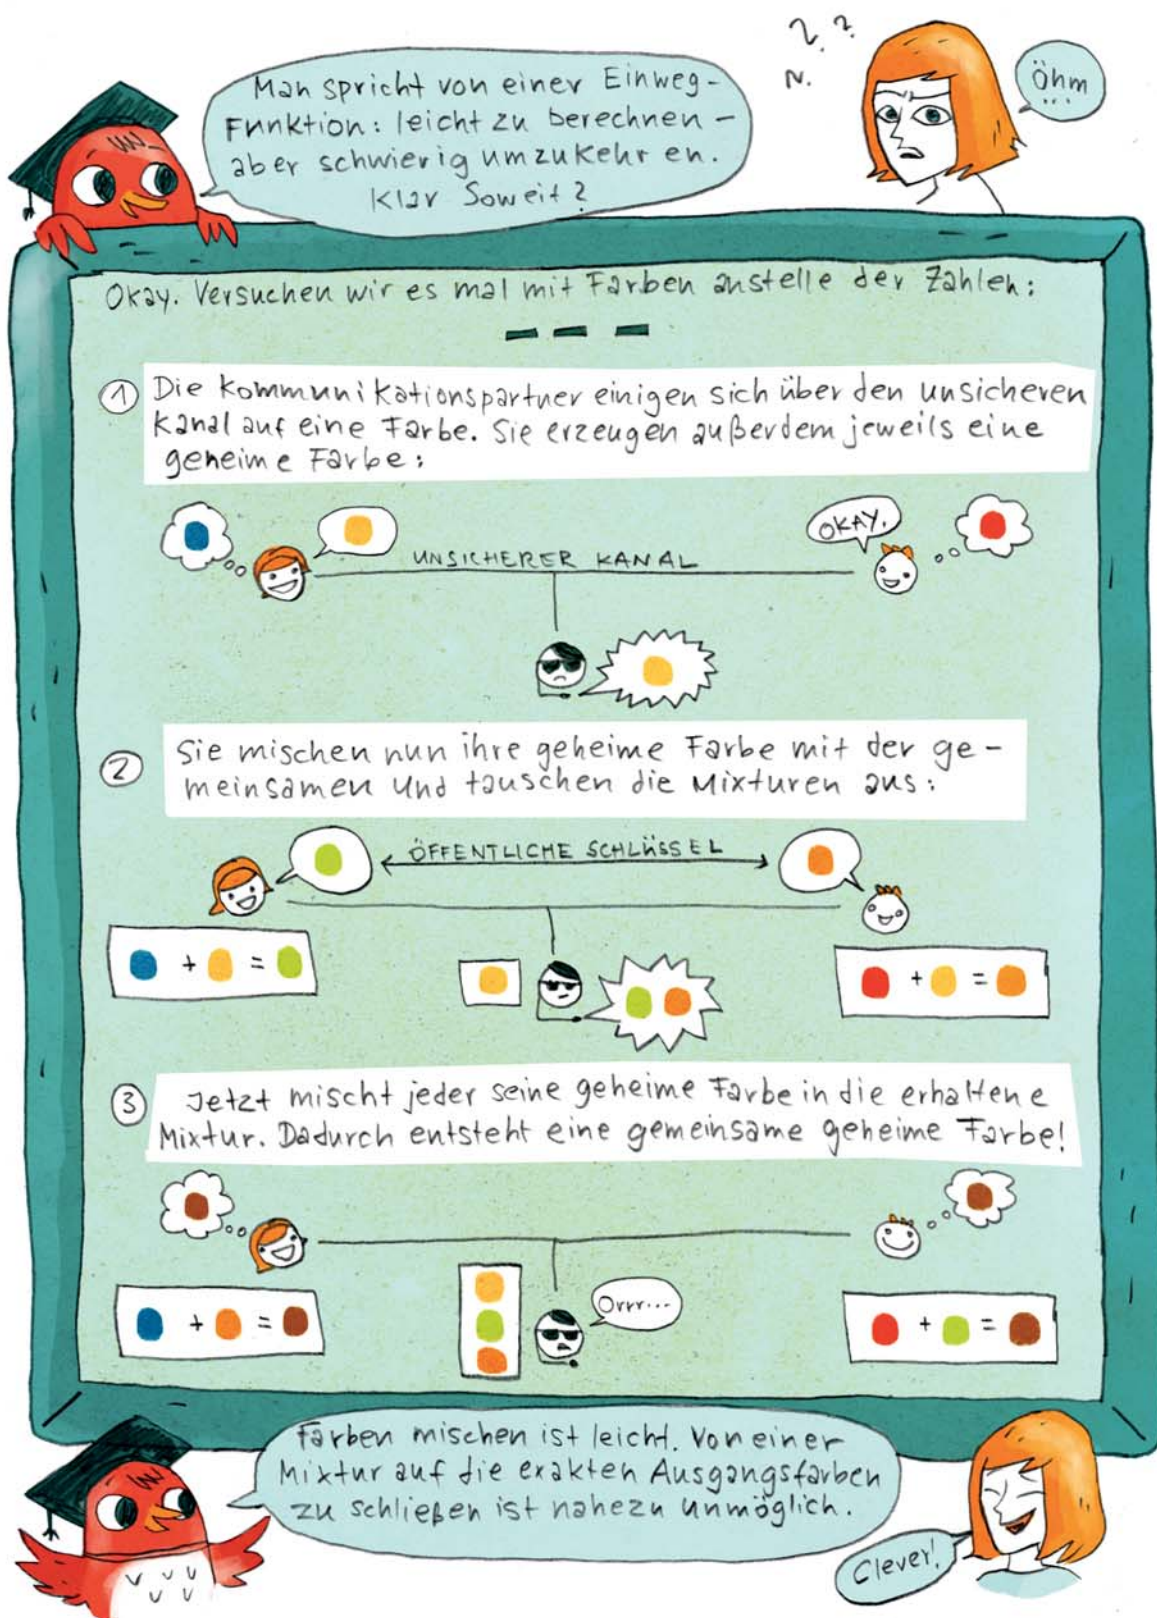 ? ?
?
Öhm
...
Man spricht von einer Einweg-
Funktion: leicht zu berechnen -
aber schwierig umzukehren.
Klar Soweit?
Okay. Versuchen wir es mal mit Farben anstelle der Zahlen:
1 Die Kommunikationspartner einigen sich über den unsicheren
Kanal auf eine Farbe. Sie erzeugen außerdem jeweils eine
geheime Farbe:
OKAY.
UNSICHERER KANAL
2 Sie mischen nun ihre geheime Farbe mit der ge-
meinsamen und tauschen die Mixturen aus:
ÖFFENTLICHE SCHLÜSSEL
+ =
+ =
3 Jetzt mischt jeder seine geheime Farbe in die erhaltene
Mixtur. Dadurch entsteht eine gemeinsame geheime Farbe!
+ =
Orrr...
+ =
Farben mischen ist leicht. Von einer
Mixtur auf die exakten Ausgangsfarben
zu schließen ist nahezu unmöglich.
Clever!